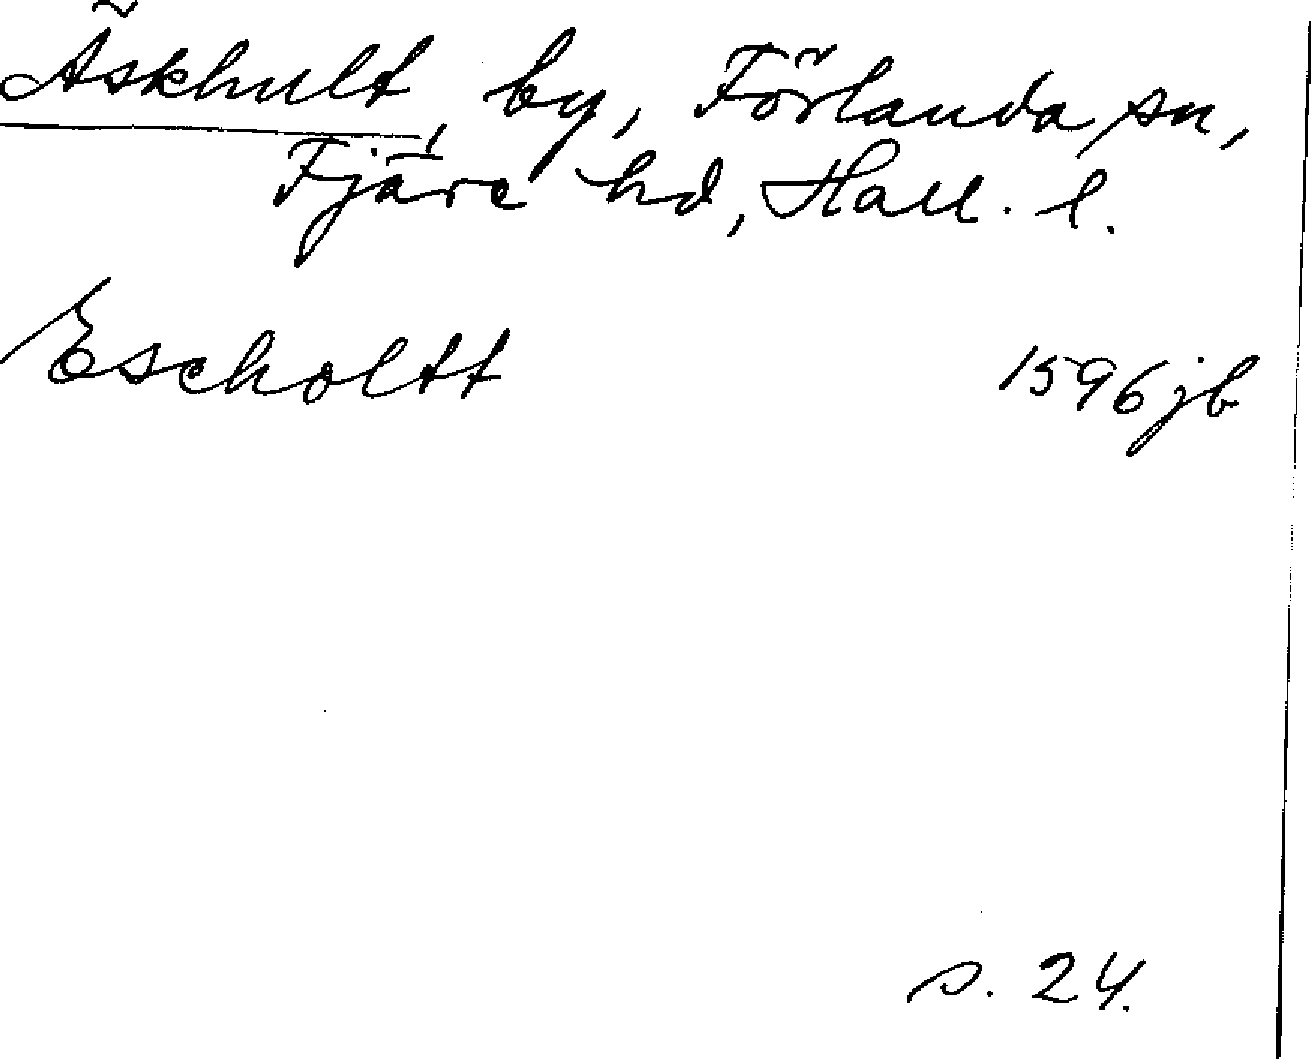 Äskhult, by, Förlanda sn,
Fjäre hd, Hall. l.
Escholtt 1596 jb
s. 24.